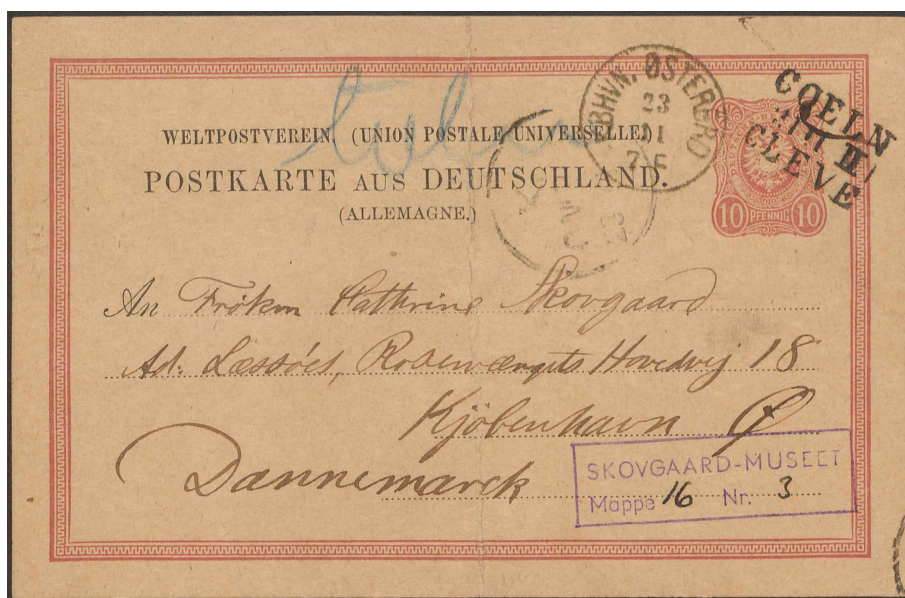 WELTPOSTVEREIN. (UNION POSTALE UNIVERSELLE)
POSTKARTE AUS DEUTSCHLAND.
(ALLEMAGNE.)
KBHVN. ØSTERBRO
23
11
COELN
II
CLEVE
10 PFENNIG 10
An Frøken Cathrine Skovgaard
Ad: Læssöes, Rosenvængets Hovedvej 18
Kjöbenhavn Ø
Dannemarck
SKOVGAARD-MUSEET
Mappe 16 Nr. 3